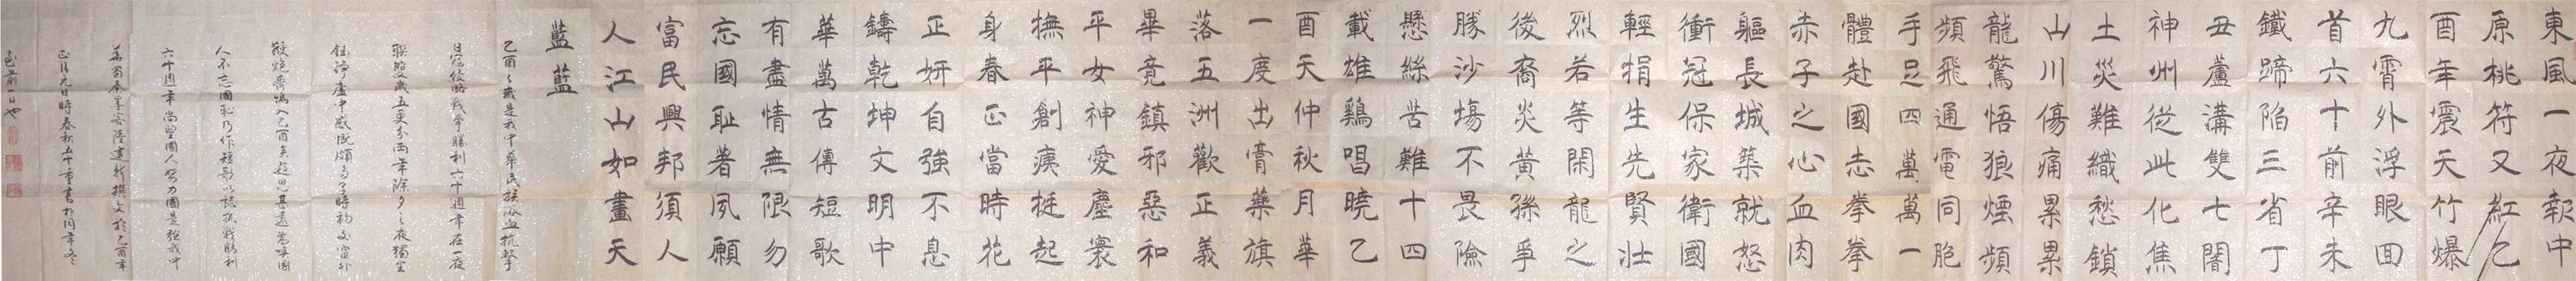 東風一夜報中
原桃符又紅乙
酉年震天竹爆
九霄外浮眼回
首六十前辛未
鐵蹄陷三省丁
丑蘆溝雙七鬧
神州從此化焦
土災難織愁鎖
山川傷痛累累
龍驚悟狼煙頻
頻飛通電同胞
手足四萬萬一
體赴國志拳拳
赤子之心血肉
軀長城築就怒
衝冠保家衛國
輕捐生先賢壯
烈若等閑龍之
後裔炎黃孫爭
勝沙場不畏險
懸絲苦難十四
載雄鷄唱曉乙
酉天仲秋月華
一度出膏藥旗
落五洲歡正義
畢竟鎮邪惡和
平女神愛塵寰
撫平創痍挺起
身春正當時花
正妍自強不息
鑄乾坤文明中
華萬古傳短歌
有盡情無限勿
忘國恥著夙願
富民興邦須人
人江山如畫天
藍藍
乙酉之歲是我中華民族浴血抗擊
日寇侵略戰爭勝利六十週年在一夜
聯雙歲五更分兩年除夕之夜獨坐
廬中感慨頗多子時初交窗外
鞭炮齊鳴入乙酉矣遐思甚遠為喚國
人不忘國恥乃作短歌以誌抗戰勝利
六十週年尚望國人努力圖是強我中
華 陸建新撰文於乙酉年
正月元日時春秋五十 書於同年冬
至前一日也